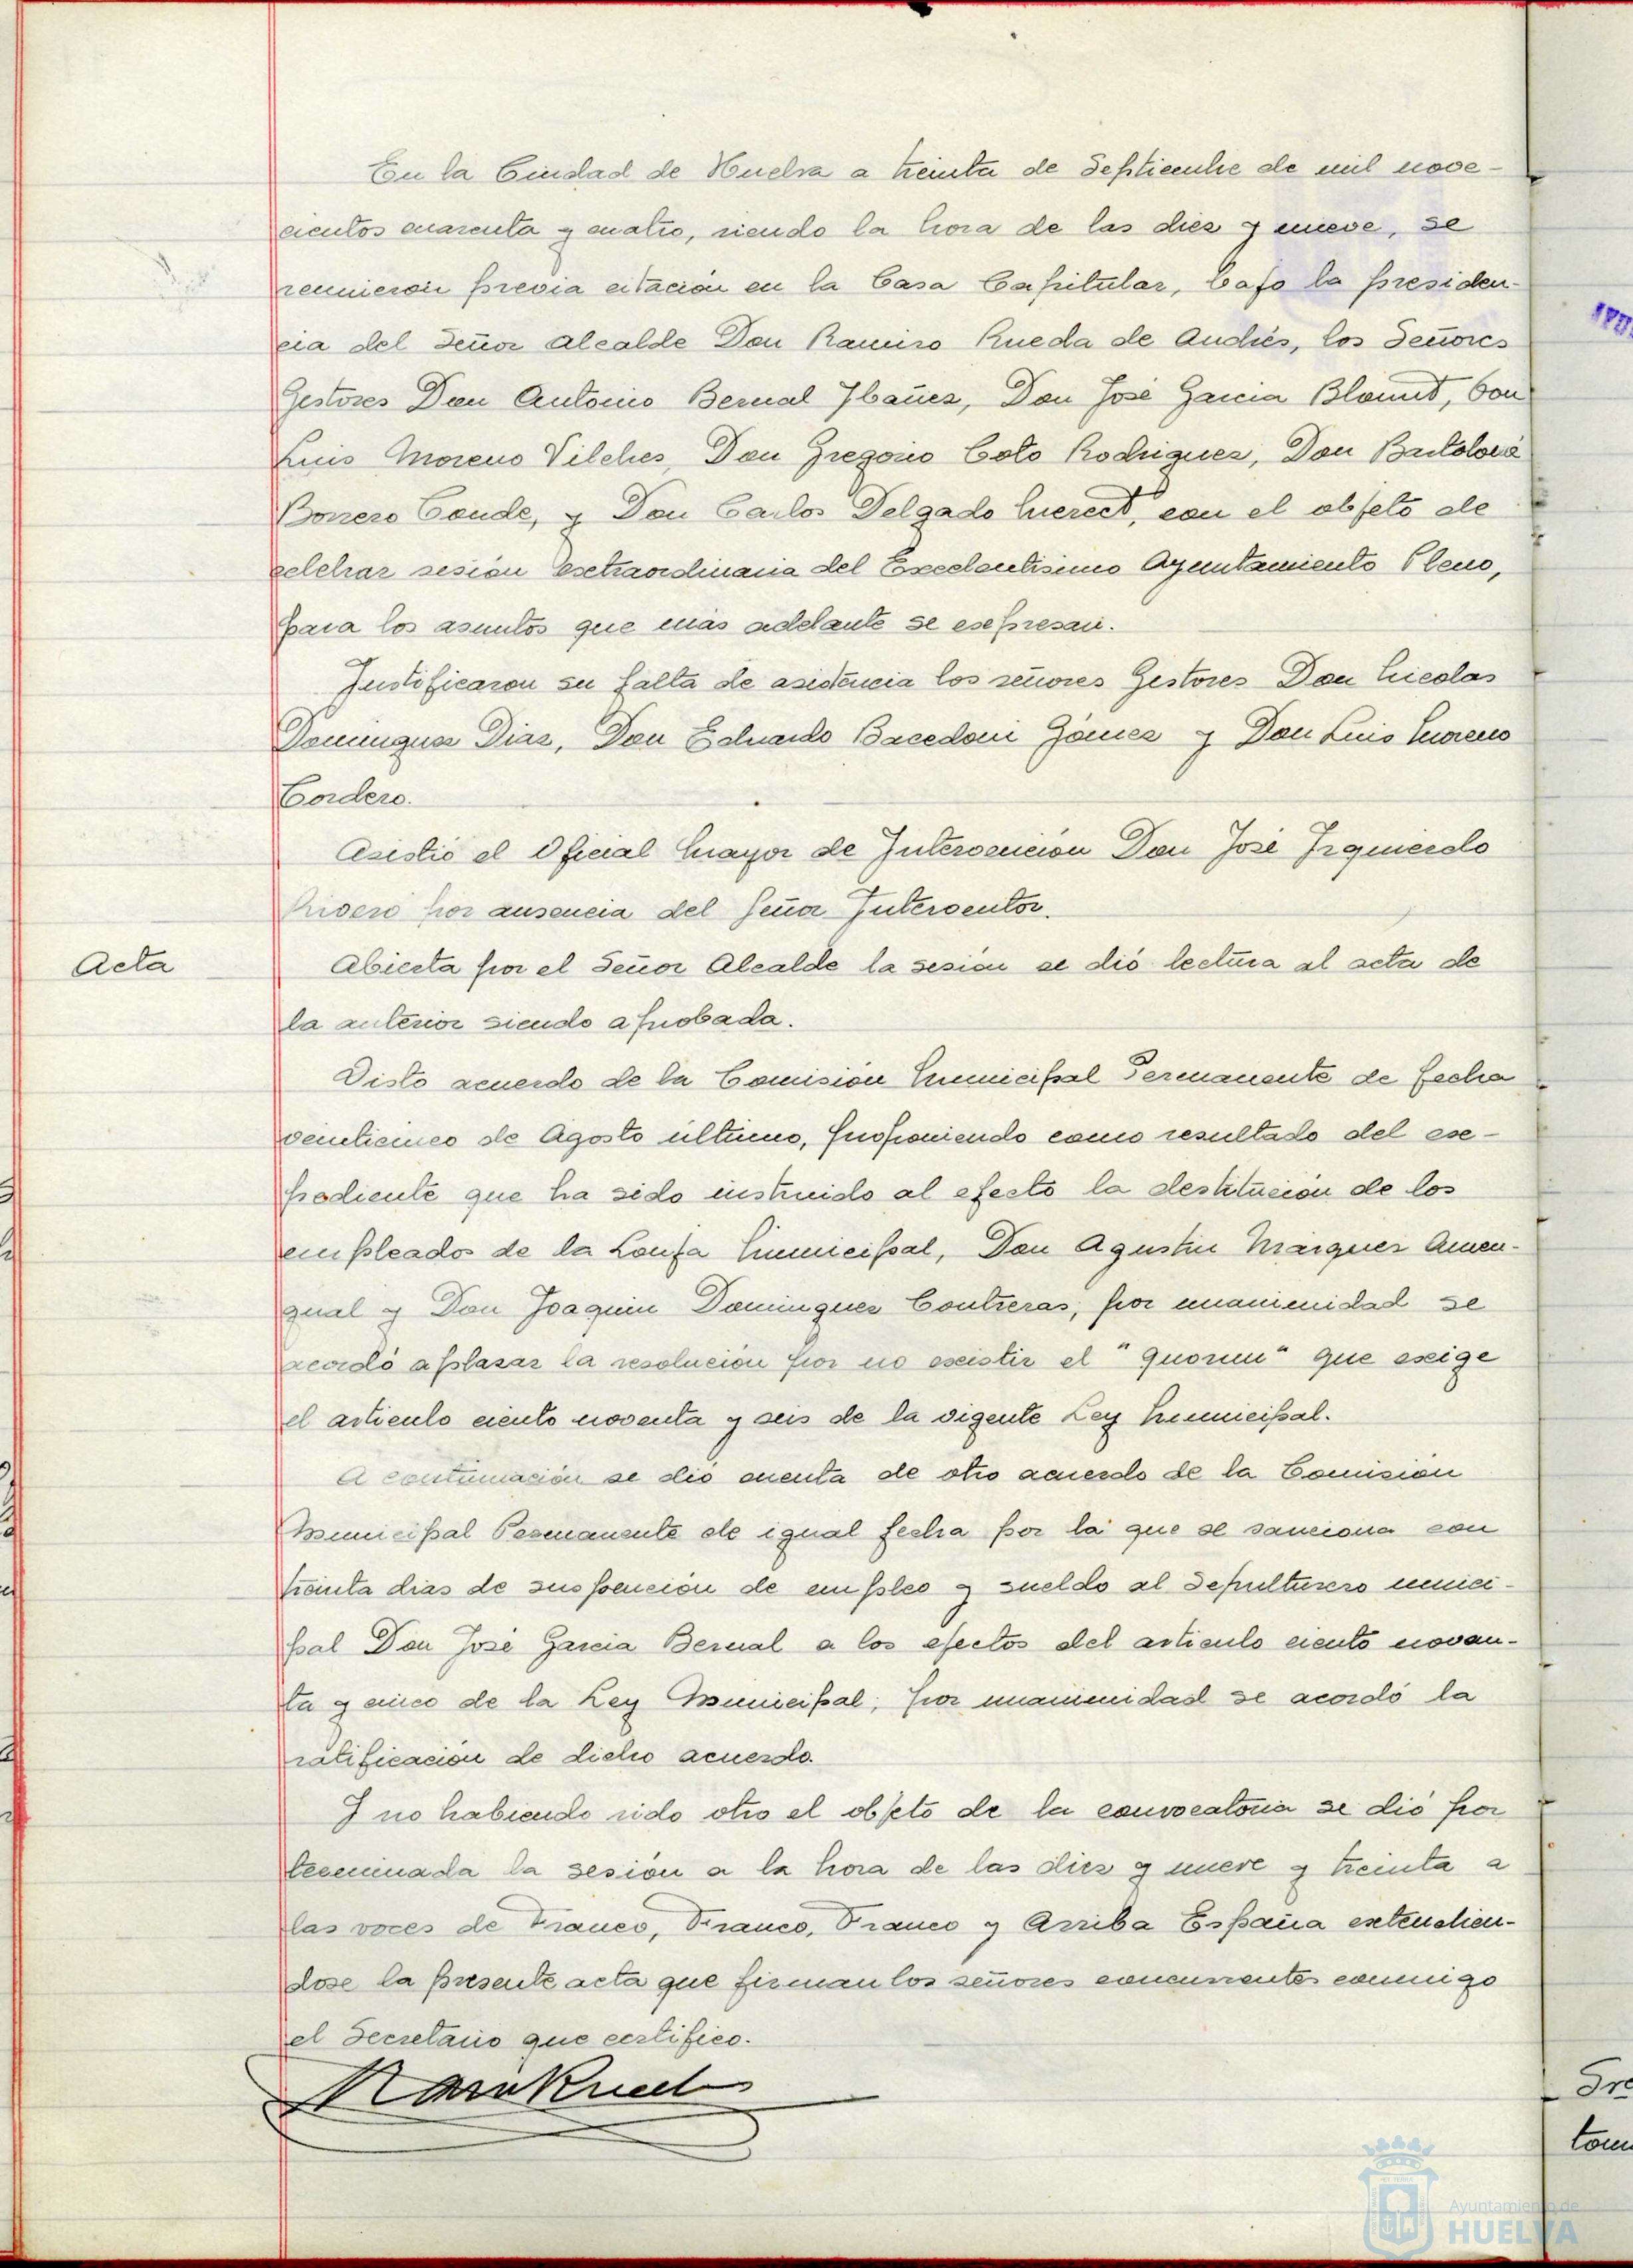 En la Ciudad de Huelva a treinta de Septiembre de mil nove-
cientos cuarenta y cuatro, siendo la hora de las diez y nueve, se
reunieron previa citación en la Casa Capitular, bajo la presiden-
cia del Señor Alcalde Don Ramiro Rueda de Andrés, los Señores
Gestores Don Antonio Bernal Ybañez, Don José Garcia Blamut, Don
Luis Moreno Vilches, Don Gregorio Coto Rodriguez, Don Bartolomé
Borrero Conde, y Don Carlos Delgado con el objeto de
celebrar sesión esctraordinaria del Excelentisimo Ayuntamiento Pleno,
para los asuntos que más adelante se escpresan.
Justificaron su falta de asistencia los señores Gestores Don Nicolas
Dominguez Diaz, Don Eduardo Bacedoni Gómez y Don Luis Moreno
Cordero.
Asistió el Oficial Mayor de Intervención Don José Izquierdo
Rivero por ausencia del Señor Interventor.
Acta
Abierta por el Señor Alcalde la sesión se dió lectura al acta de
la anterior siendo aprobada.
Visto acuerdo de la Comisión Municipal Permanente de fecha
veinticinco de Agosto último, proponiendo como resultado del esc-
pediente que ha sido instruido al efecto la destitución de los
empleados de la Lonja Municipal, Don Agustin Márquez Amen-
gual y Don Joaquin Dominguez Contreras, por unanimidad se
acordó aplazar la resolución por no escistir el "quorum" que escige
el articulo ciento noventa y seis de la vigente Ley Municipal.
A continuación se dió cuenta de otro acuerdo de la Comisión
Municipal Permanente de igual fecha por la que se sanciona con
treinta dias de suspención de empleo y sueldo al Sepulturero munici-
pal Don José Garcia Bernal a los efectos del articulo ciento noven-
ta y cinco de la Ley Municipal; por unanimidad se acordó la
ratificación de dicho acuerdo.
Y no habiendo sido otro el objeto de la convocatoria se dió por
terminada la sesión a la hora de las diez y nueve y treinta a
las voces de Franco, Franco, Franco y Arriba España extendien-
dose la presente acta que firman los señores concurrentes conmigo
el Secretario que certifico.
Ram Rueda
Ayuntamiento de
HUELVA